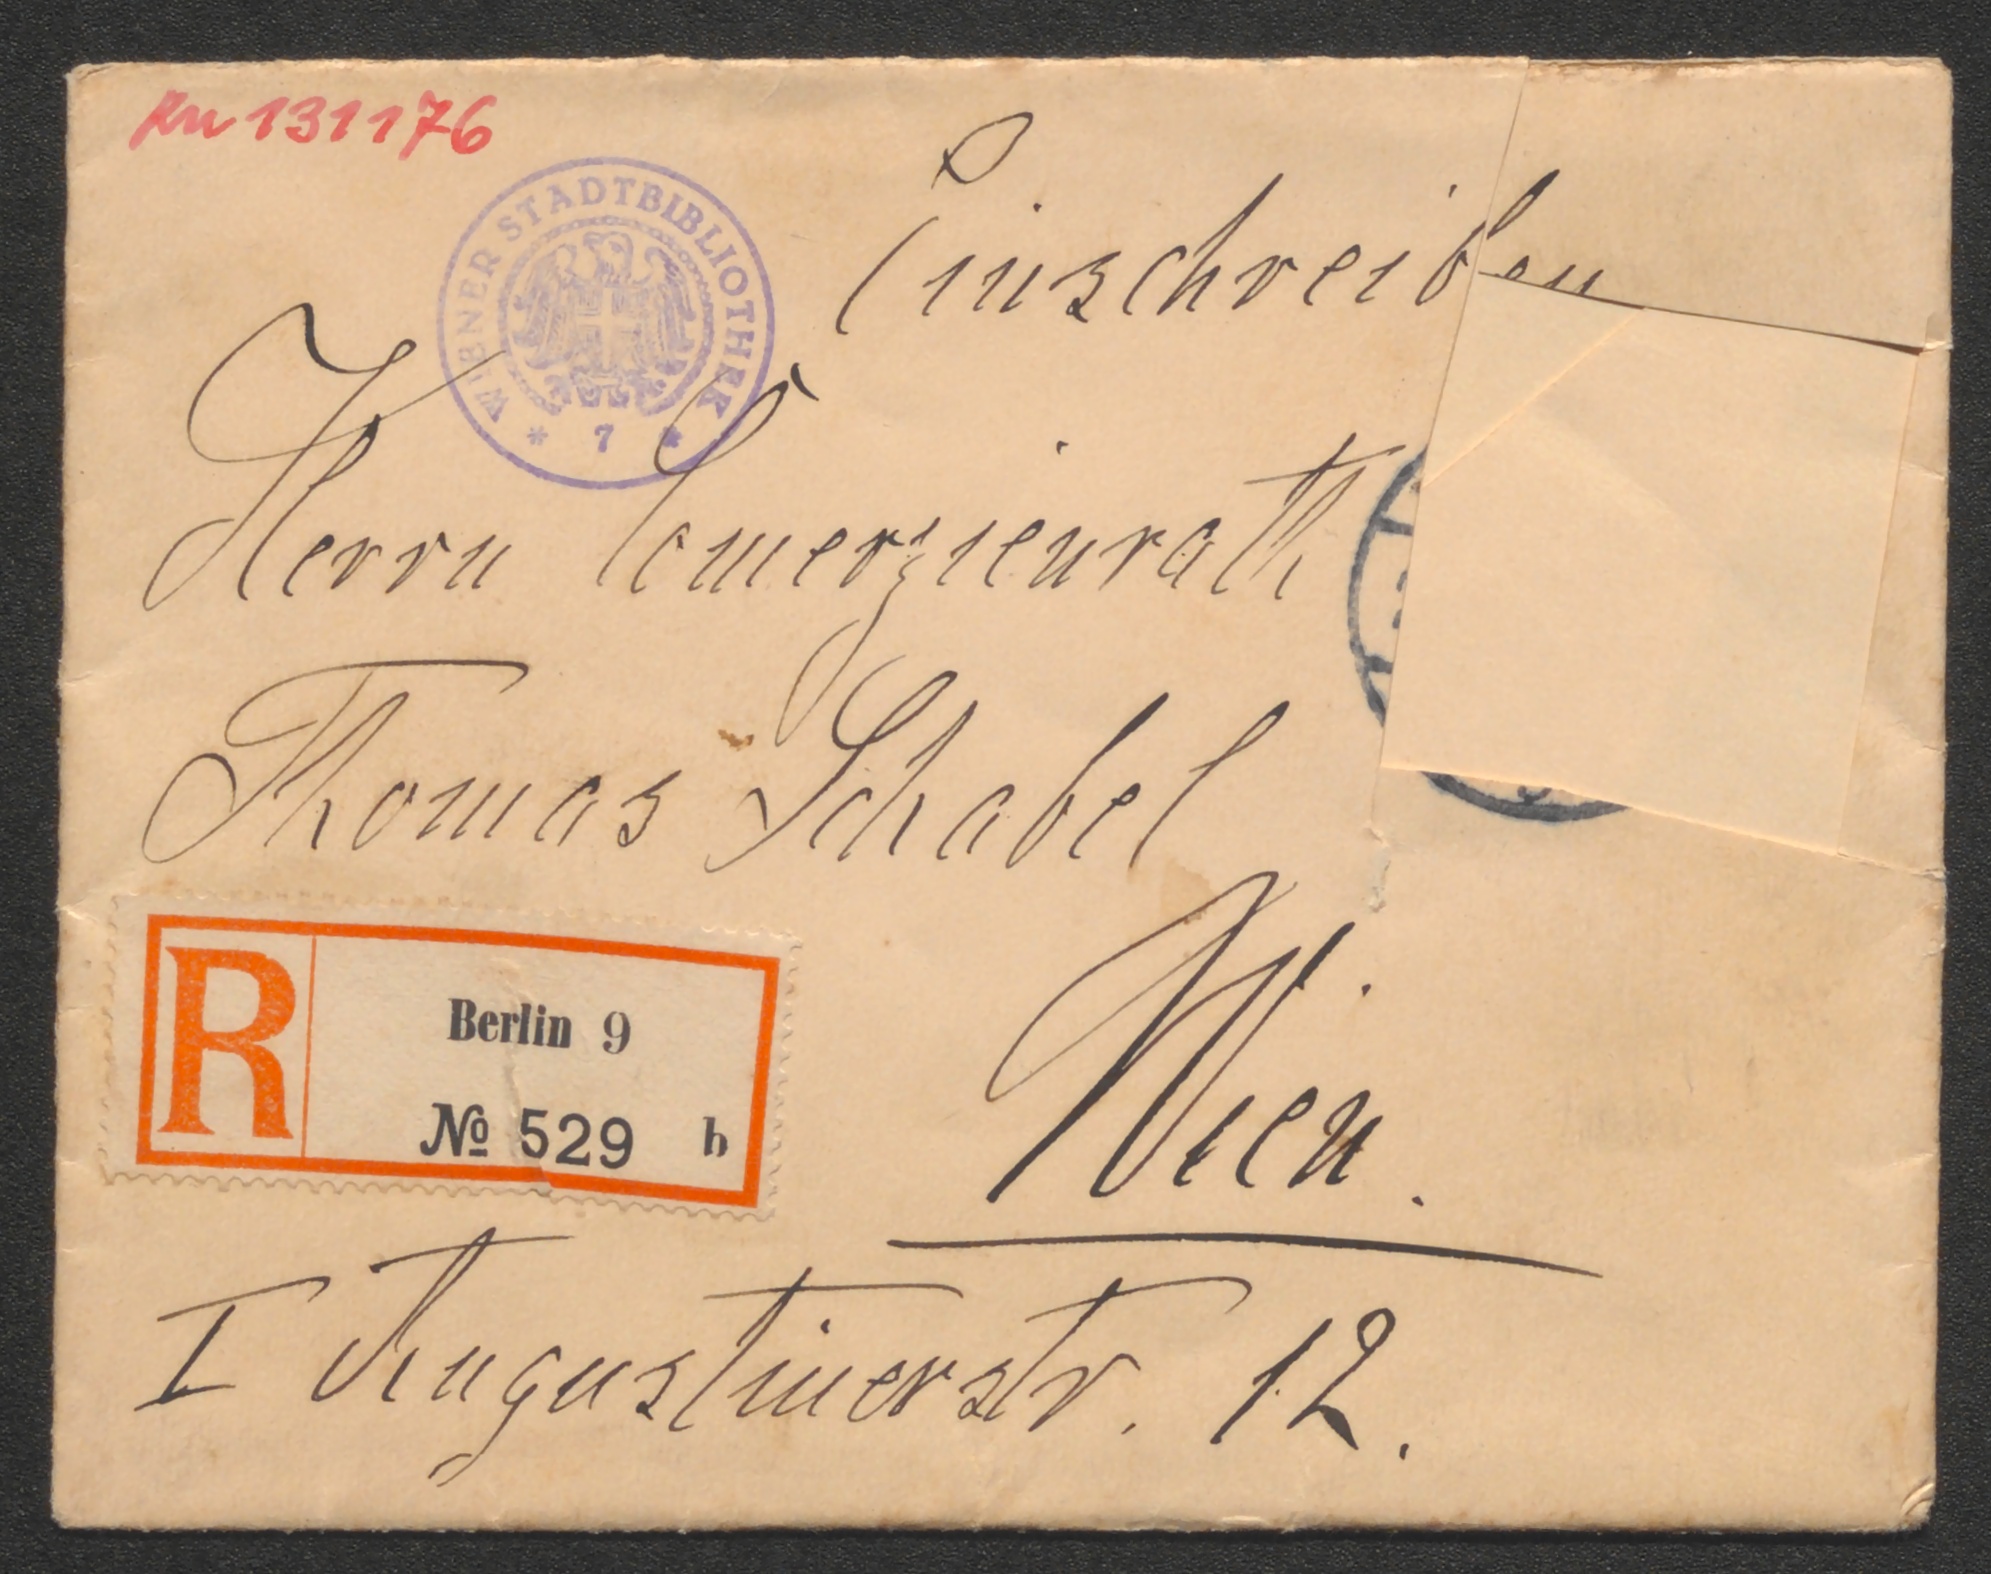 HN 131176
WIENER STADTBIBLIOTHEK
* 7 *
Einschreiben
Herrn Comerzienrath
Thomas Schabel
R
Berlin 9
№ 529 b
Wien.
I Augustinerstr. 12.